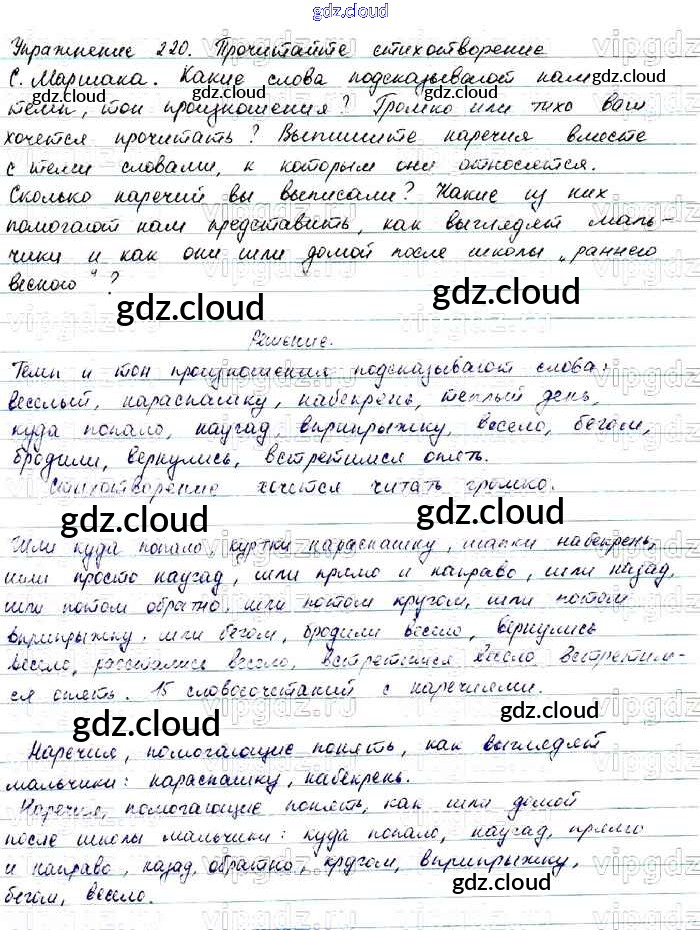 gdz.cloud
Упражнение 220. Прочитайте стихотворение
С. Маршака. Какие слова подсказывают нам
темп, тон произношения? Громко или тихо вам
хочется прочитать? Выпишите наречия вместе
с теми словами, к которым они относятся.
Сколько наречий вы выписали? Какие из них
помогают нам представить, как выглядят маль-
чики и как они шли домой после школы „раннею
весною“?
Решение.
Темп и тон произношения подсказывают слова:
веселый, нараспашку, набекрень, теплый день,
куда попало, наугад, вприпрыжку, весело, бегом,
бродили, вернулись, встретимся опять.
Стихотворение хочется читать громко.
Шли куда попало, куртки нараспашку, шапки набекрень,
шли просто наугад, шли прямо и направо, шли назад,
шли потом обратно, шли потом кругом, шли потом
вприпрыжку, шли бегом, бродили весело, вернулись
весело, расстались весело, встретимся весело встретим-
ся опять. 15 словосочетаний с наречиями.
Наречия, помогающие понять, как выглядят
мальчики: нараспашку, набекрень.
Наречия, помогающие понять, как шли домой
после школы мальчики: куда попало, наугад, прямо
и направо, назад, обратно, кругом, вприпрыжку,
бегом, весело.